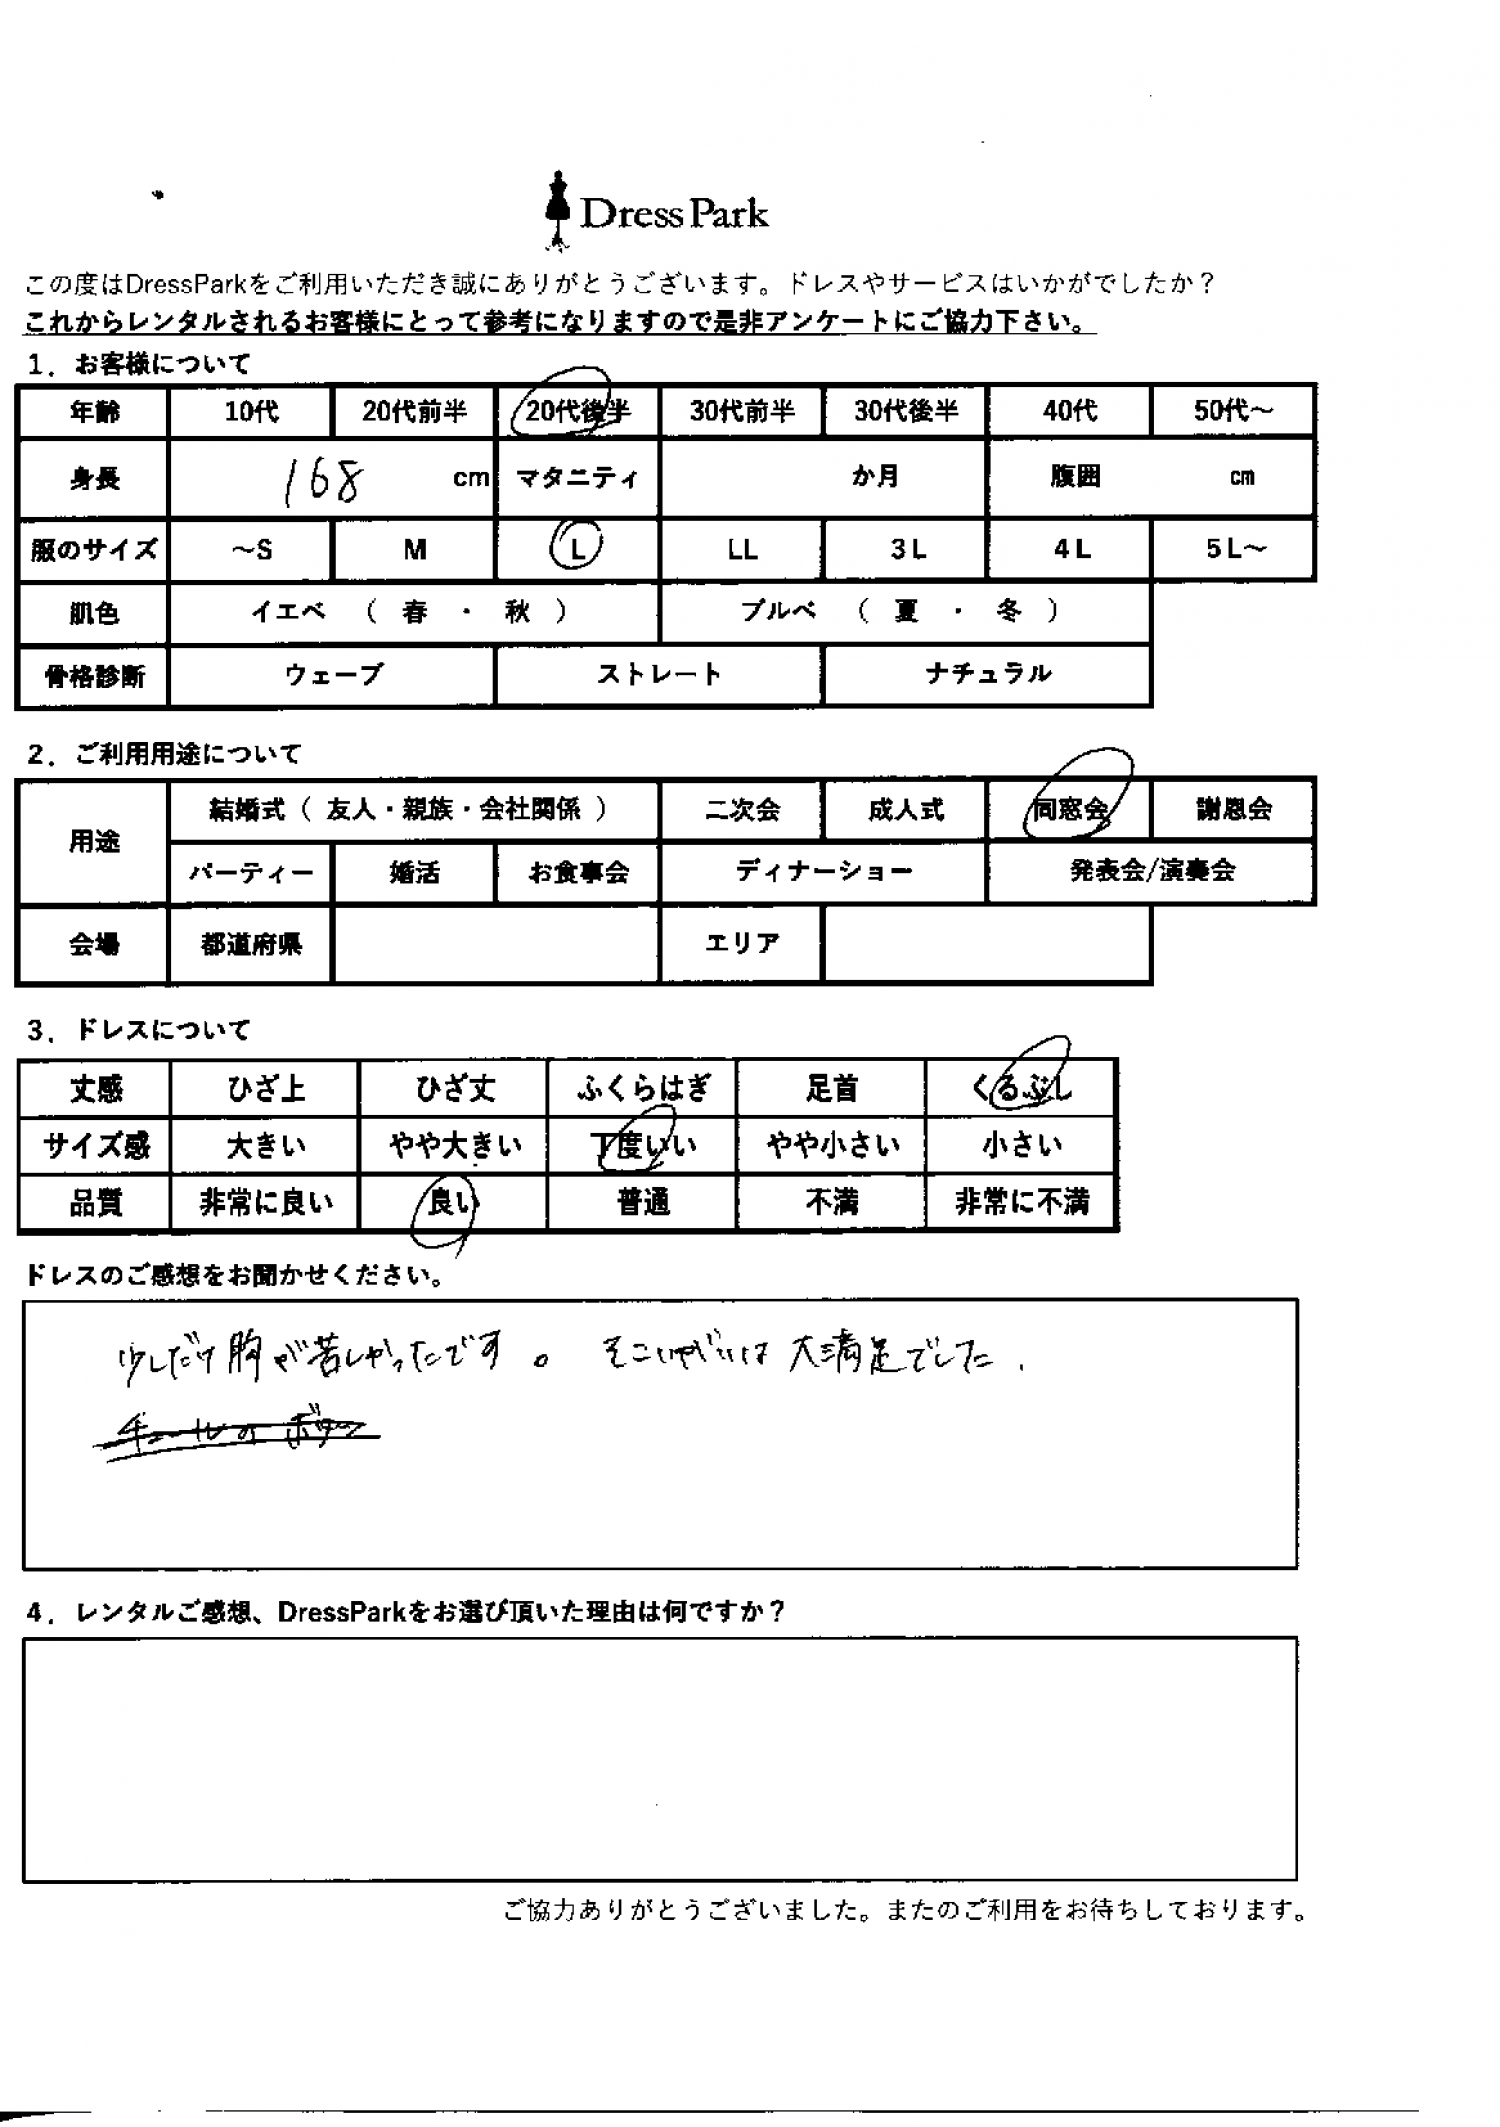 Dress Park
この度はDressParkをご利用いただき誠にありがとうございます。ドレスやサービスはいかがでしたか？
これからレンタルされるお客様にとって参考になりますので是非アンケートにご協力下さい。
1．お客様について
年齢 10代 20代前半 20代後半 30代前半 30代後半 40代 50代～
身長 168 cm マタニティ か月 腹囲 cm
服のサイズ ～S M L LL 3L 4L 5L～
肌色 イエベ （ 春 ・ 秋 ） ブルベ （ 夏 ・ 冬 ）
骨格診断 ウェーブ ストレート ナチュラル
2．ご利用用途について
用途 結婚式（ 友人・親族・会社関係 ） 二次会 成人式 同窓会 謝恩会
パーティー 婚活 お食事会 ディナーショー 発表会/演奏会
会場 都道府県 エリア
3．ドレスについて
丈感 ひざ上 ひざ丈 ふくらはぎ 足首 くるぶし
サイズ感 大きい やや大きい 丁度いい やや小さい 小さい
品質 非常に良い 良い 普通 不満 非常に不満
ドレスのご感想をお聞かせください。
少しだけ胸が苦しかったです。 そこいがいは大満足でした．
チュールのボタン
4．レンタルご感想、DressParkをお選び頂いた理由は何ですか？
ご協力ありがとうございました。またのご利用をお待ちしております。